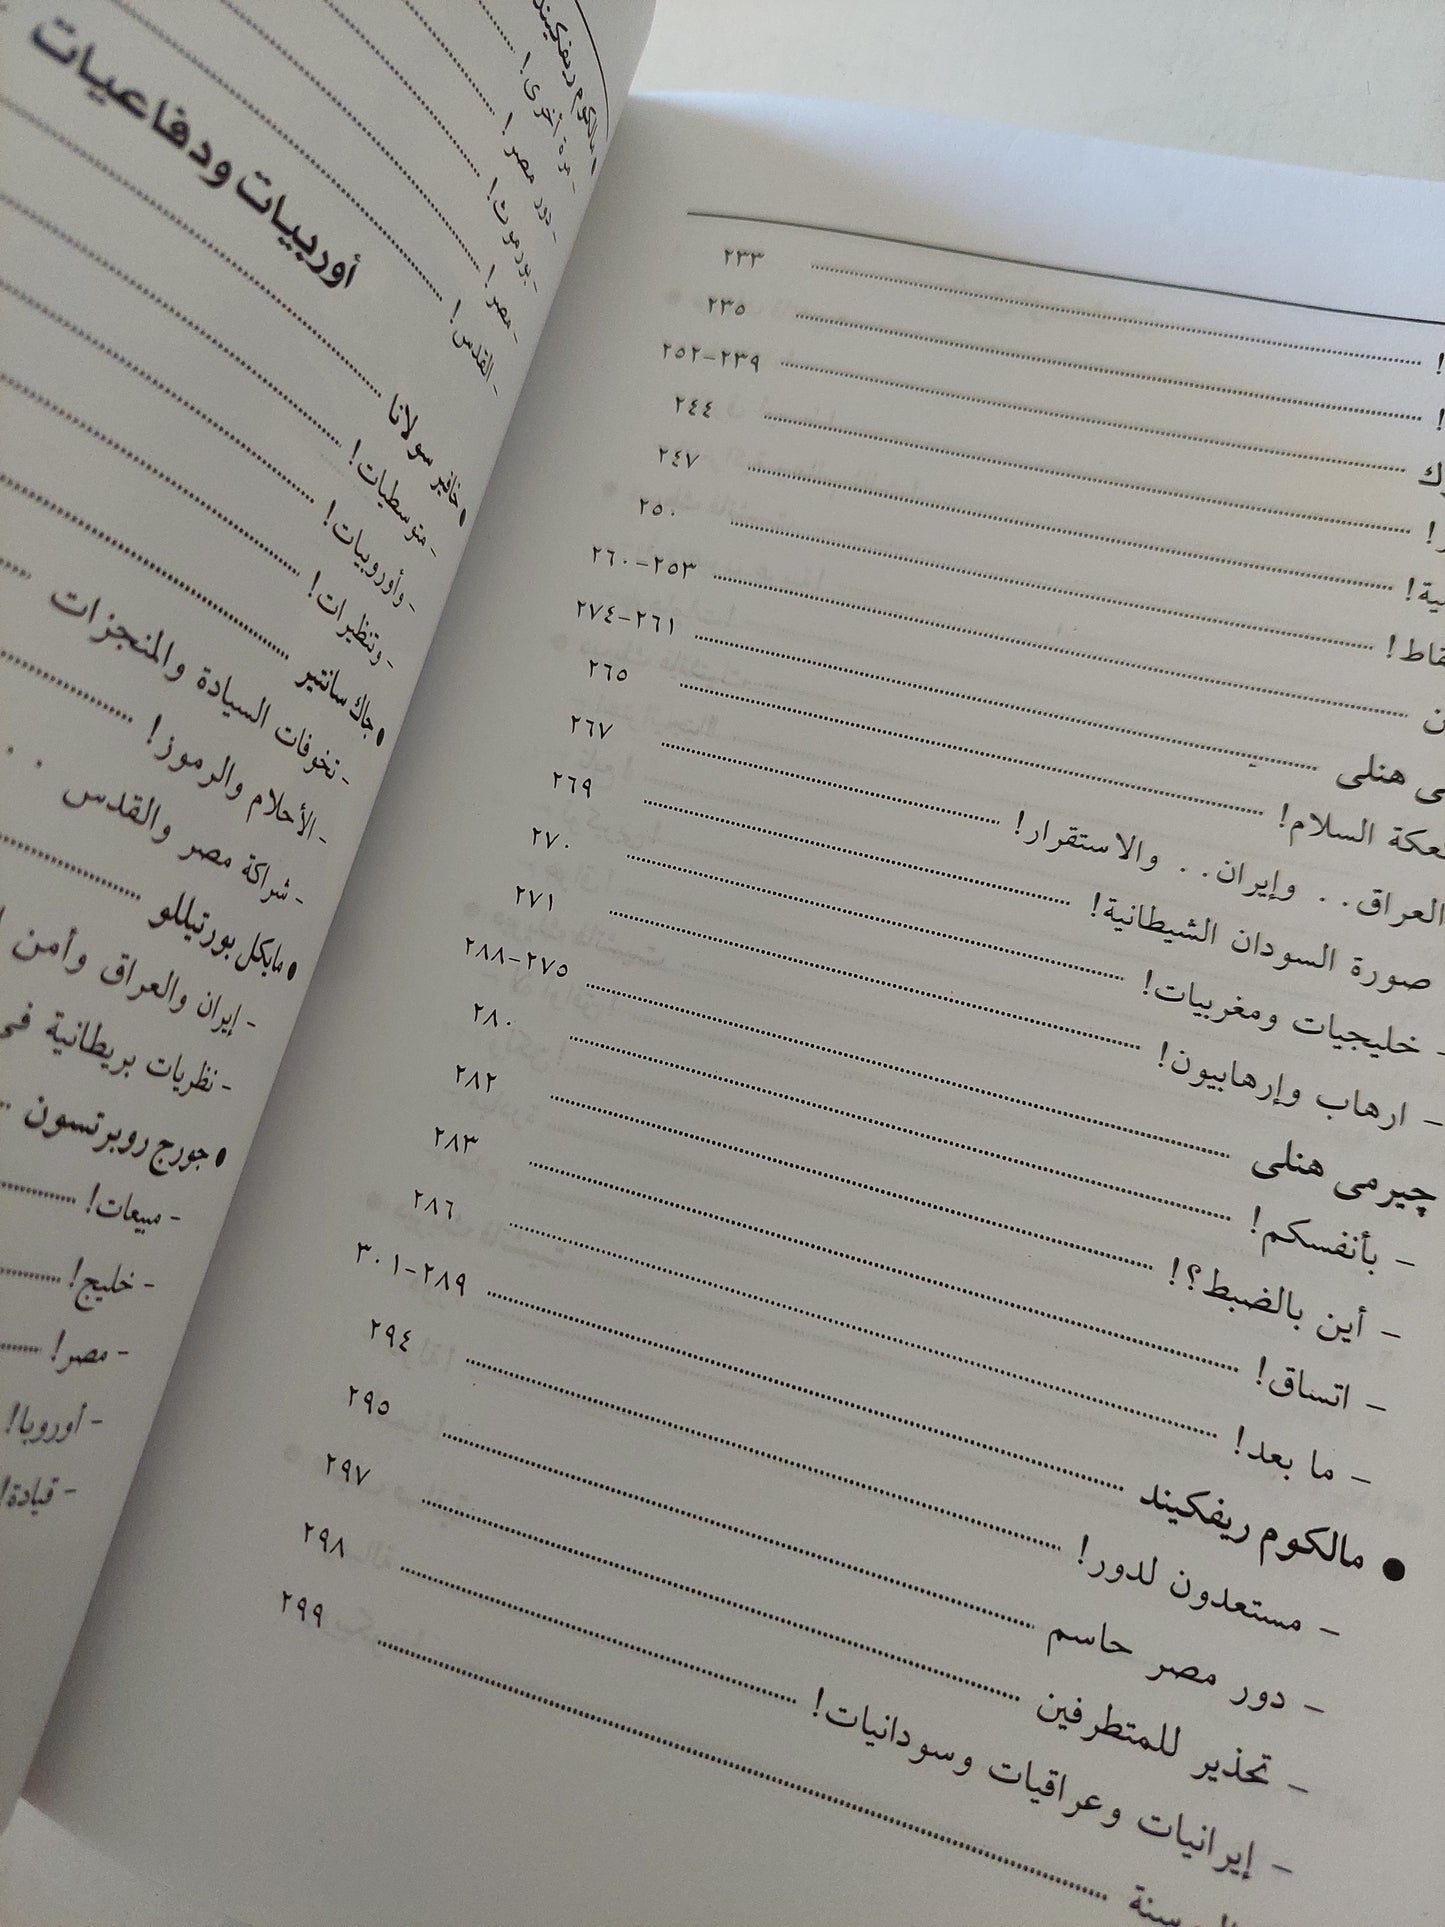 ! ........ ٢٣٣
! ........ ٢٣٥
........ ٢٣٩-٢٥٢
! ........ ٢٤٤
! ........ ٢٤٧
! ........ ٢٥٠
........ ٢٥٣-٢٦٠
هنلى ........ ٢٦١-٢٧٤
السلام! ........ ٢٦٥
العراق.. وإيران.. والاستقرار! ........ ٢٦٧
صورة السودان الشيطانية! ........ ٢٦٩
- خليجيات ومغربيات! ........ ٢٧٠
- ارهاب وإرهابيون! ........ ٢٧١
چيرمى هنلى ........ ٢٧٥-٢٨٨
- بأنفسكم! ........ ٢٨٠
- أين بالضبط؟! ........ ٢٨٢
- اتساق! ........ ٢٨٣
- ما بعد! ........ ٢٨٦
● مالكوم ريفكيند ........ ٢٨٩-٣٠١
- مستعدون لدور! ........ ٢٩٤
- دور مصر حاسم ........ ٢٩٥
- تحذير للمتطرفين ........ ٢٩٧
- إيرانيات وعراقيات وسودانيات! ........ ٢٩٨
........ ٢٩٩
● مالكوم ريفكيند
- مرة أخرى! ........
- دور مصر! ........
- بورموث! ........
- مصر! ........
- القدس! ........
أوربيات ودفاعيات
● خافير سولانا ........
- متوسطيات! ........
- وأوروبيات! ........
- وتنظيرات! ........
● جاك سانتير ........
- تخوفات السيادة والمنجزات ........
- الأحلام والرموز! ........
- شراكة مصر والقدس . .
● مايكل بورتيللو ........
- إيران والعراق وأمن
- نظريات بريطانية فى
● جورج روبرتسون ..
- مبيعات! ........
- خليج! ........
- مصر! ........
- أوروبا!
- قيادة!